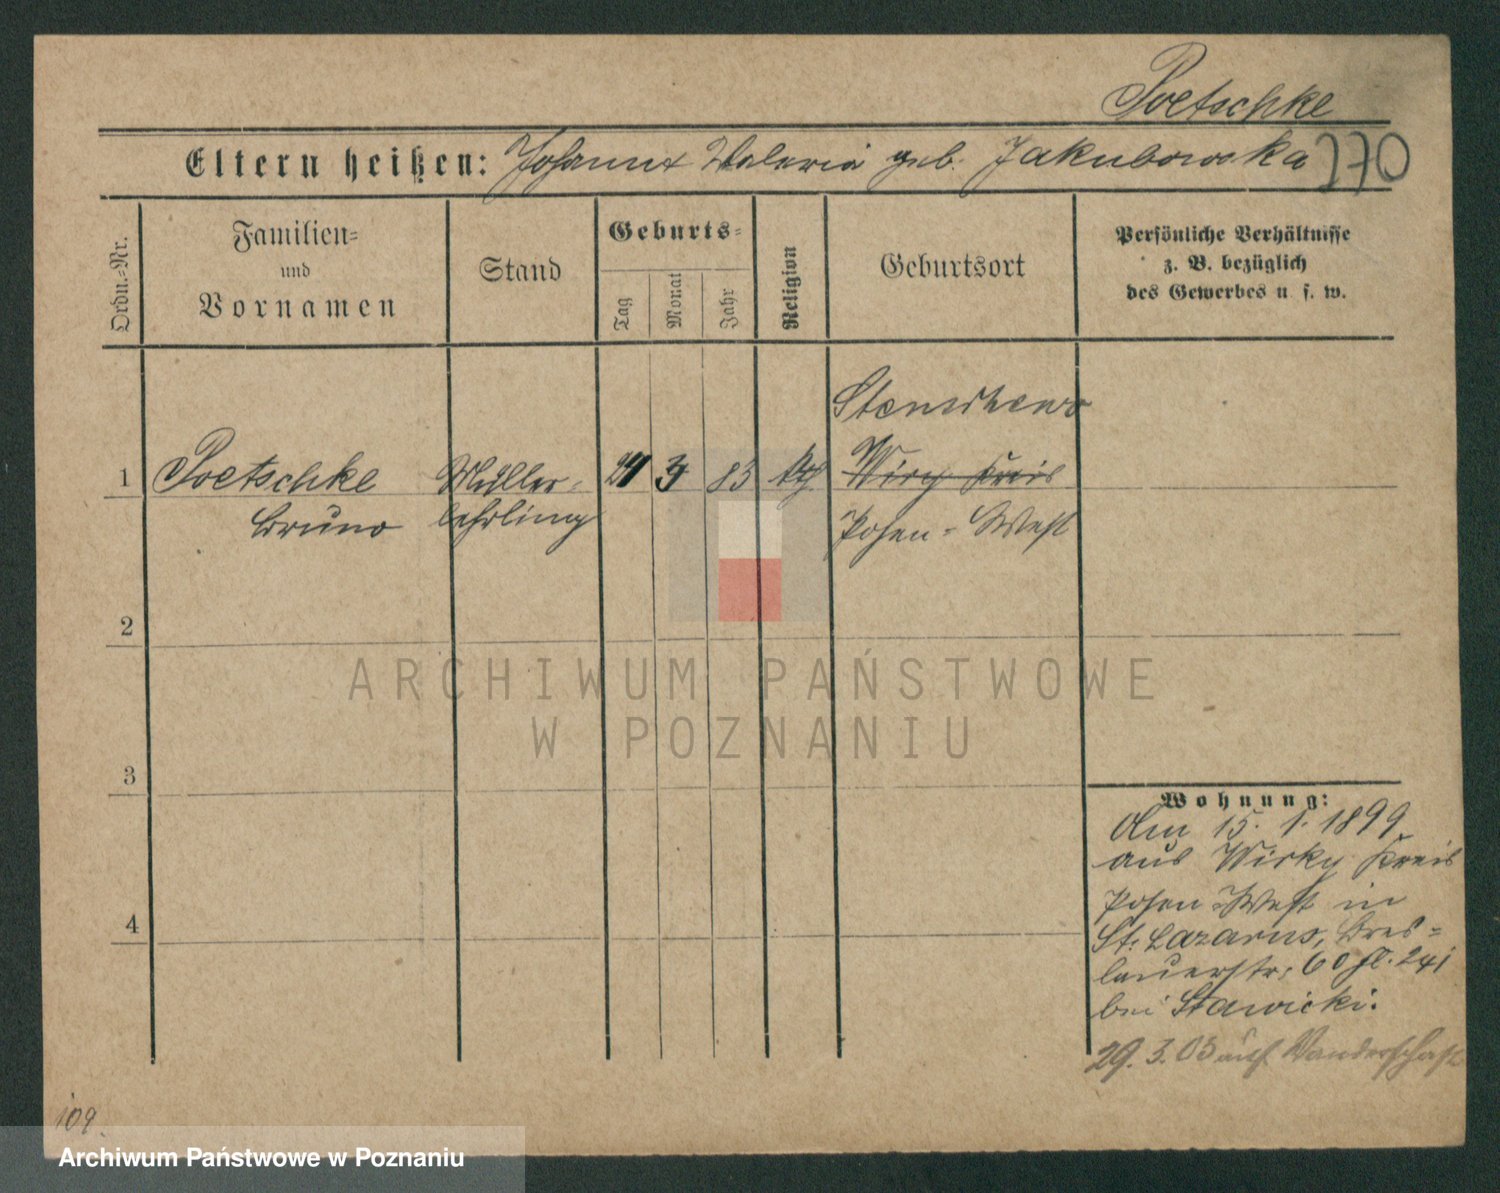 Poetschke
Eltern heißen: Johann u Valeria geb. Jakubowska
170
Ordn.-Nr.
Familien-
und
Vornamen
Stand
Geburts-
Tag
Monat
Jahr
Religion
Geburtsort
Persönliche Verhältnisse
z. B. bezüglich
des Gewerbes u. s. w.
Stenschewo
1 Poetschke Müller- 3 83 kth. Wiry Kreis
Bruno lehrling Posen-West
2
3
4
Wohnung:
Am 15. 1. 1899
aus Wirky Kreis
Posen West in
St. Lazarus, Bres-
lauerstr. 60 fl. 241
bei Stawicki.
29. 3. 03 auf Wanderschaft
109.
ARCHIWUM PAŃSTWOWE
W POZNANIU
Archiwum Państwowe w Poznaniu